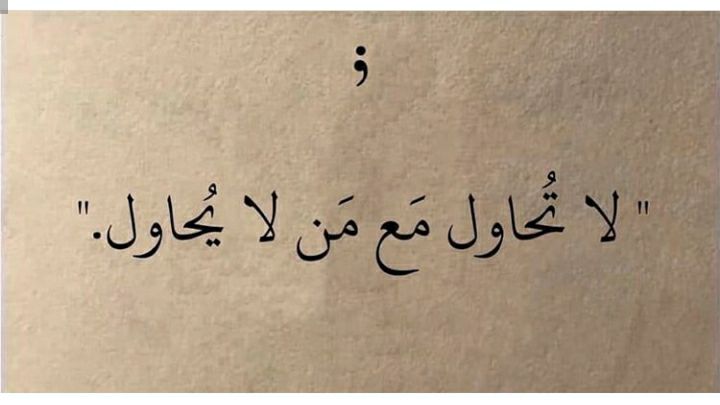 ؛
" لا تُحاول مَع مَن لا يُحاول."